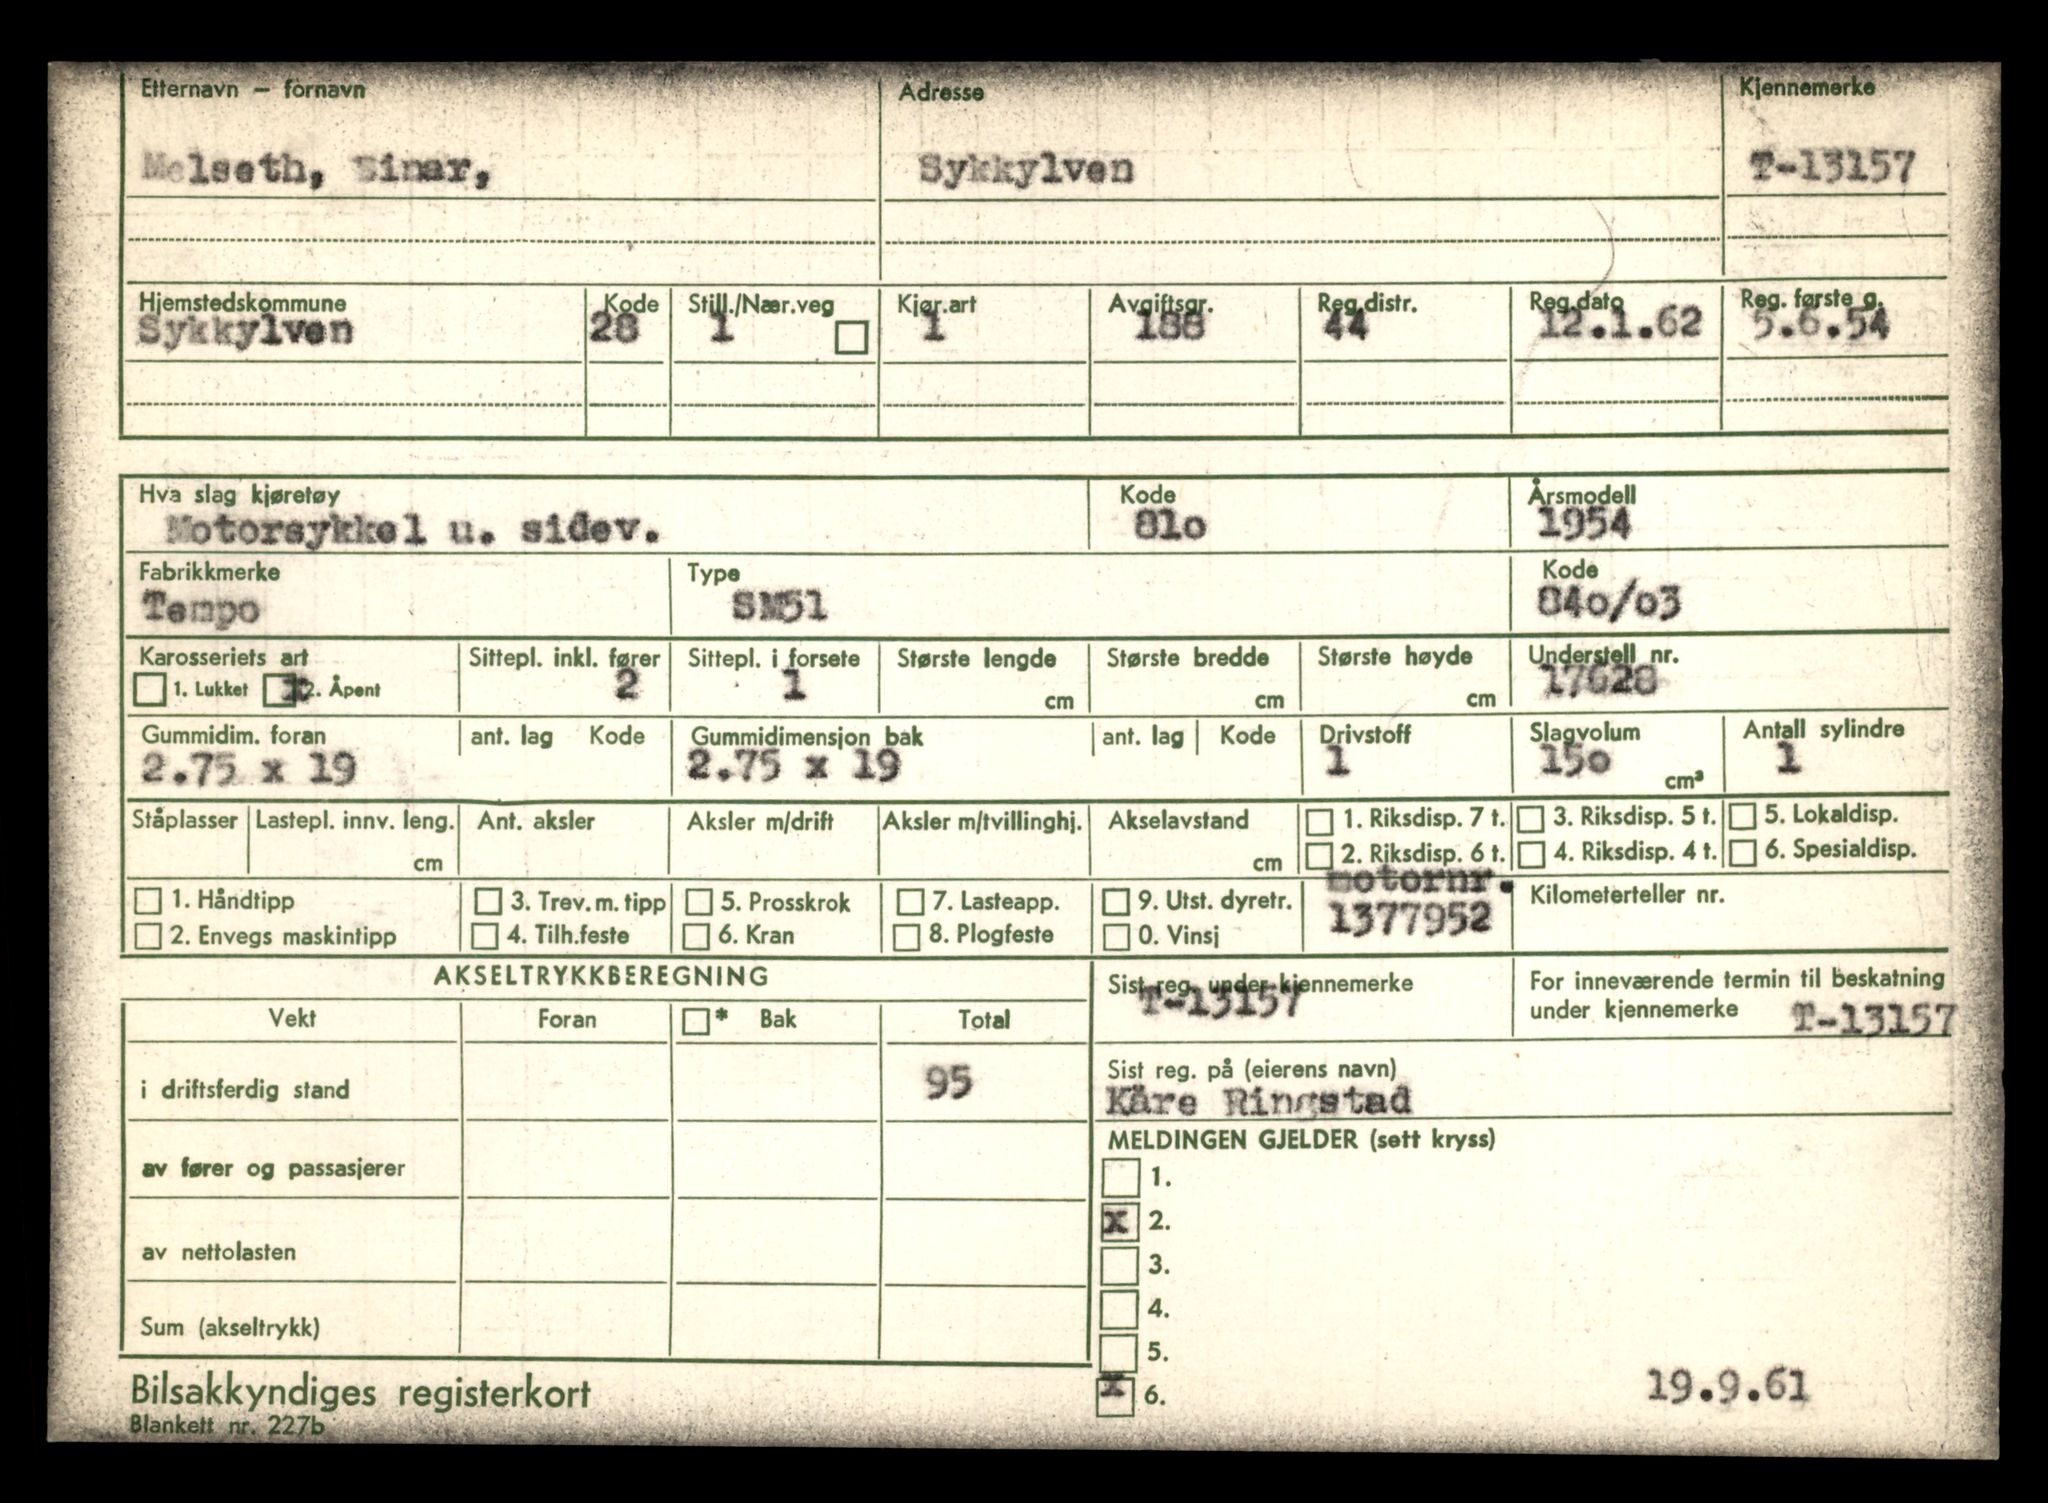 Etternavn — fornavn Adresse Kjennemerke
Melseth, Einar, Sykkylven T-13157
Hjemstedskommune Kode Still./Nær.veg Kjør.art Avgiftsgr. Reg.distr. Reg.dato Reg. første g.
Sykkylven 28 1 1 188 44 12.1.62 5.6.54
Hva slag kjøretøy Kode Årsmodell
Motorsykkel u. sidev. 81o 1954
Fabrikkmerke Type Kode
Tempo SM51 84o/o3
Karosseriets art Sittepl. inkl. fører Sittepl. i forsete Største lengde Største bredde Største høyde Understell nr.
1. Lukket x 2. Åpent 2 1 cm cm cm 17628
Gummidim. foran ant. lag Kode Gummidimensjon bak ant. lag Kode Drivstoff Slagvolum Antall sylindre
2.75 x 19 2.75 x 19 1 15o cm³ 1
Ståplasser Lastepl. innv. leng. Ant. aksler Aksler m/drift Aksler m/tvillinghj. Akselavstand 1. Riksdisp. 7 t. 3. Riksdisp. 5 t. 5. Lokaldisp.
cm cm 2. Riksdisp. 6 t. 4. Riksdisp. 4 t. 6. Spesialdisp.
1. Håndtipp 3. Trev. m. tipp 5. Prosskrok 7. Lasteapp. 9. Utst. dyretr. motornr. Kilometerteller nr.
2. Envegs maskintipp 4. Tilh.feste 6. Kran 8. Plogfeste 0. Vinsj 1377952
AKSELTRYKKBEREGNING Sist reg. under kjennemerke For inneværende termin til beskatning
T-13157 under kjennemerke T-13157
Vekt Foran * Bak Total
Sist reg. på (eierens navn)
i driftsferdig stand 95 Kåre Ringstad
MELDINGEN GJELDER (sett kryss)
av fører og passasjerer 1.
x 2.
av nettolasten 3.
4.
Sum (akseltrykk) 5.
Bilsakkyndiges registerkort x 6. 19.9.61
Blankett nr. 227b